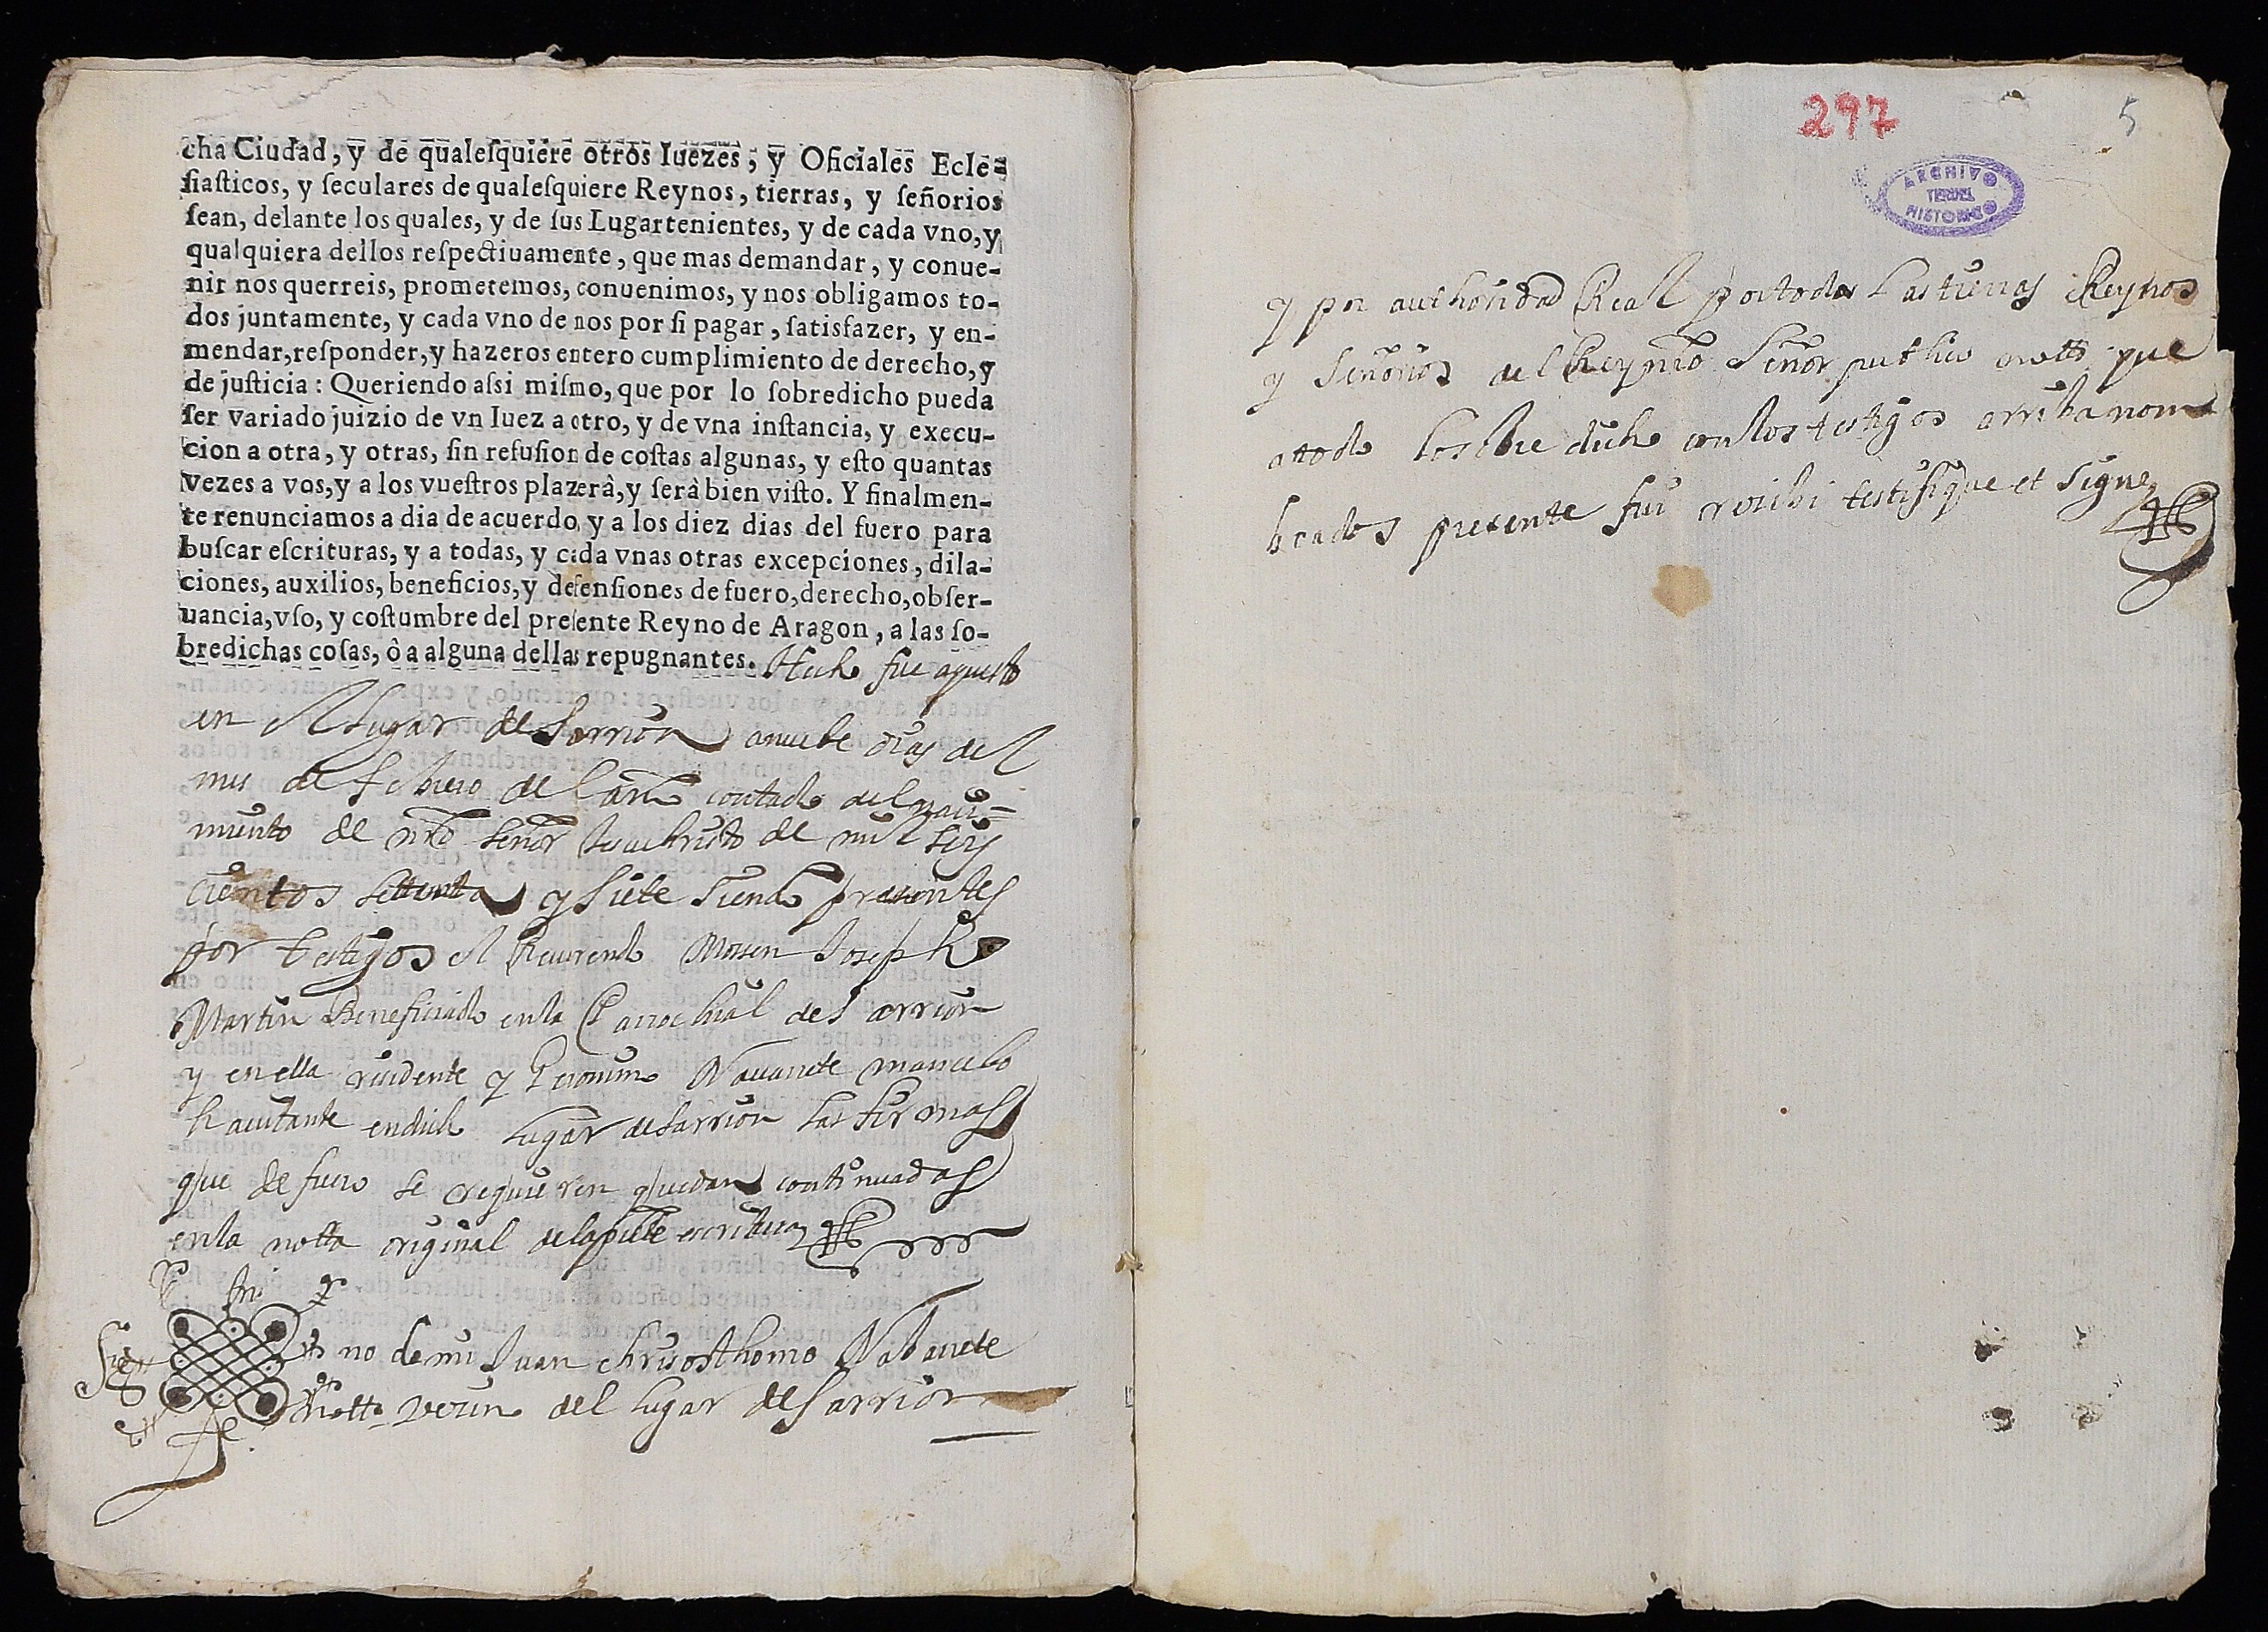 cha Ciudad, y de qualeſquiere otros Iuezes, y Oficiales Ecle-
ſiaſticos, y ſeculares de qualeſquiere Reynos, tierras, y ſeñorios
ſean, delante los quales, y de ſus Lugartenientes, y de cada vno, y
qualquiera dellos reſpectiuamente, que mas demandar, y conue-
nir nos querreis, prometemos, conuenimos, y nos obligamos to-
dos juntamente, y cada vno de nos por ſi pagar, ſatisfazer, y en-
mendar, reſponder, y hazeros entero cumplimiento de derecho, y
de juſticia: Queriendo aſsi miſmo, que por lo ſobredicho pueda
ſer variado juizio de vn Iuez a otro, y de vna inſtancia, y execu-
cion a otra, y otras, ſin refuſion de coſtas algunas, y eſto quantas
vezes a vos, y a los vueſtros plazerà, y ſerà bien viſto. Y finalmen-
te renunciamos a dia de acuerdo, y a los diez dias del fuero para
buſcar eſcrituras, y a todas, y cada vnas otras excepciones, dila-
ciones, auxilios, beneficios, y defenſiones de fuero, derecho, obſer-
uancia, vſo, y coſtumbre del preſente Reyno de Aragon, a las ſo-
bredichas coſas, ô a alguna dellas repugnantes. Hecho fue aquesto
en el lugar de Sarrion a nuebe dias del
mes de febrero del año contado del naci=
miento de nro señor Jesuchristo de mil seys
cientos settenta y siete siendo presentes
por testigos el Reuerendo Mosen Joseph
Martin Beneficiado en la Parrochial de Sarrion
y en ella residente y Geronimo Nauarrete mancebo
hauitante en dicho lugar de Sarrion las firmas
que de fuero se requieren quedan continuadas
en la notta original de la pnte escritura
Sig no de mi Juan chrisosthomo Nabarrete
notto vecino del lugar de Sarrion
297
5
ARCHIVO
TERUEL
HISTORICO
y por authoridad Real por todas las tierras Reynos
y Señorios del Rey nro Señor publico notto que
a todo lo sobre dicho con los testigos arriba nom
brados presente fui receibi testifique et signe